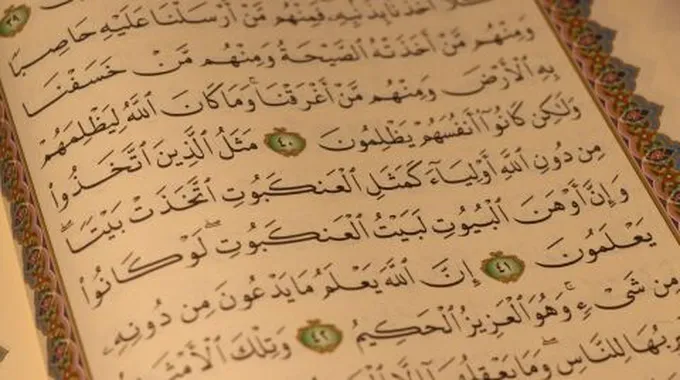 أَخَذْنَا بِذَنۢبِهِۦ فَمِنْهُم مَّنْ أَرْسَلْنَا عَلَيْهِ حَاصِبًا
وَمِنْهُم مَّنْ أَخَذَتْهُ الصَّيْحَةُ وَمِنْهُم مَّنْ خَسَفْنَا
بِهِ الْأَرْضَ وَمِنْهُم مَّنْ أَغْرَقْنَا ۚ وَمَا كَانَ اللَّهُ لِيَظْلِمَهُمْ
وَلَٰكِن كَانُوٓا۟ أَنفُسَهُمْ يَظْلِمُونَ ٤٠ مَثَلُ الَّذِينَ اتَّخَذُوا۟
مِن دُونِ اللَّهِ أَوْلِيَآءَ كَمَثَلِ الْعَنكَبُوتِ اتَّخَذَتْ بَيْتًا ۖ
وَإِنَّ أَوْهَنَ الْبُيُوتِ لَبَيْتُ الْعَنكَبُوتِ ۖ لَوْ كَانُوا۟
يَعْلَمُونَ ٤١ إِنَّ اللَّهَ يَعْلَمُ مَا يَدْعُونَ مِن دُونِهِۦ
مِن شَىْءٍ ۚ وَهُوَ الْعَزِيزُ الْحَكِيمُ ٤٢ وَتِلْكَ الْأَمْثَٰلُ
لِلنَّاسِ ۖ وَمَا يَعْقِلُهَآ إِلَّا